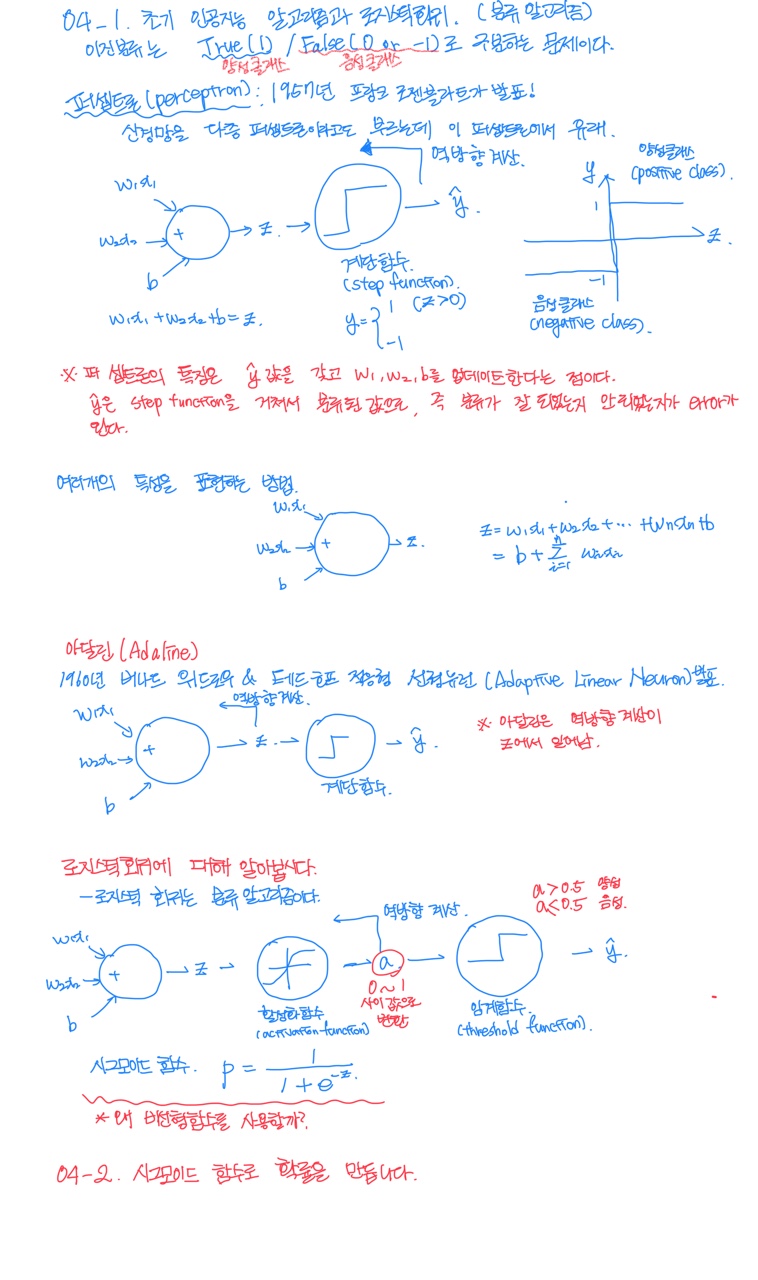 04-1. 초기 인공지능 알고리즘과 로지스틱회귀. (분류 알고리즘)
이진분류는 True(1) / False(0 or -1)로 구분하는 문제이다.
양성클래스 음성클래스
퍼셉트론(perceptron) : 1957년 프랑크 로젠블라트가 발표!
신경망을 다층 퍼셉트론이라고도 부르는데 이 퍼셉트론에서 유래.
역방향 계산.
w₁x₁
w₂x₂ + z. ŷ.
b
계단함수.
(step function).
w₁x₁+w₂x₂+b=z.
y= { 1 (z>0)
-1
y 양성클래스
(positive class).
1
z.
-1
음성클래스
(negative class).
※ 퍼셉트론의 특징은 ŷ값을 갖고 w₁, w₂, b를 업데이트한다는 점이다.
ŷ은 step function을 거쳐서 분류된 값으로, 즉 분류가 잘 되었는지 안되었는지가 error가
된다.
여러개의 특성을 표현하는 방법.
w₁x₁
w₂x₂ + z.
b
z=w₁x₁+w₂x₂+⋯ +wnxn+b
= b+ n∑i=1 wixi
아달린(Adaline)
1960년 버나드 위드로우 & 테드 호프 적응형 선형뉴런(Adaptive Linear Neuron)발표.
역방향계산.
w₁x₁
w₂x₂ + z. ŷ.
b
계단함수.
※ 아달린은 역방향 계산이
z에서 일어남.
로지스틱회귀에 대해 알아봅시다.
-로지스틱 회귀는 분류 알고리즘이다.
a>0.5 양성
a<0.5 음성.
역방향 계산.
w₁x₁
w₂x₂ + z a ŷ.
b
0~1
사이 값으로
변환
활성화함수
(activation function)
임계함수.
(threshold function).
시그모이드 함수. p = 1 / 1+e^-z.
* 왜 비선형함수를 사용할까?
04-2. 시그모이드 함수로 확률을 만듭니다.